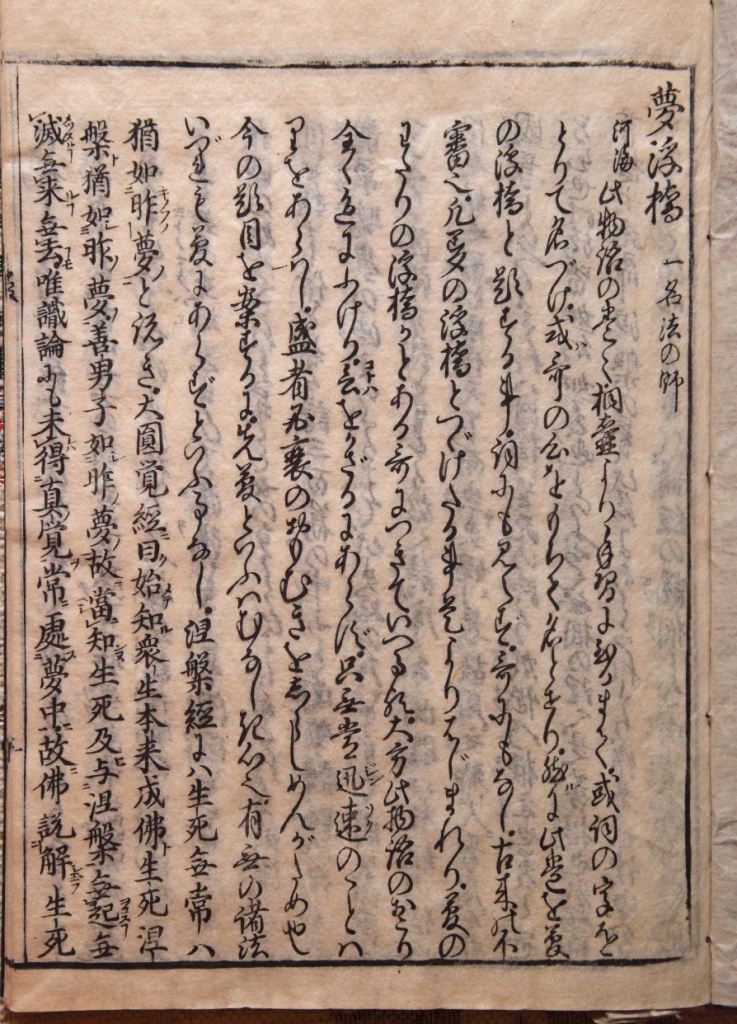 夢浮橋 一名法の師
河海 此物語の巻々桐壺より手習にいたるまて或詞の字を
とりて名づけ或哥の心をもちて名とせり然に此巻を夢
の浮橋と題する事詞にも見えず哥にもなし古来の不
審也凡夢の浮橋とつゞけたる事是よりはじまれり夢の
わたりの浮橋かとある哥につきていへる歟大方此物語のおこり
全く庭にふけり言をかざるにあらず只無常迅速のことハ
りをあらハし盛者必衰のおもむきをしらしめんがため也
今の題目を案ずるに先夢といふハむなしき名也有無の諸法
いづれも夢にあらずといふ事なし涅槃経にハ生死無常ハ
猶如昨夢と説き大圓覚経曰始知衆生本来成佛生死涅
槃猶如昨夢善男子如昨夢故當知生死及与涅槃無起無
滅無来無去唯識論にも未得真覚常處夢中故佛説解生死